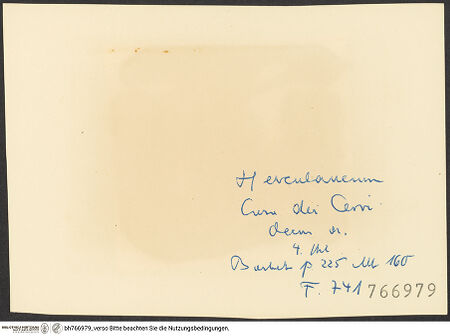 Herculaneum
Casa dei Cervi
decus n.
4. Stil
Barbet p 225 Abb 160
F. 741 766979
bh766979_verso Bitte beachten Sie die Nutzungsbedingungen.